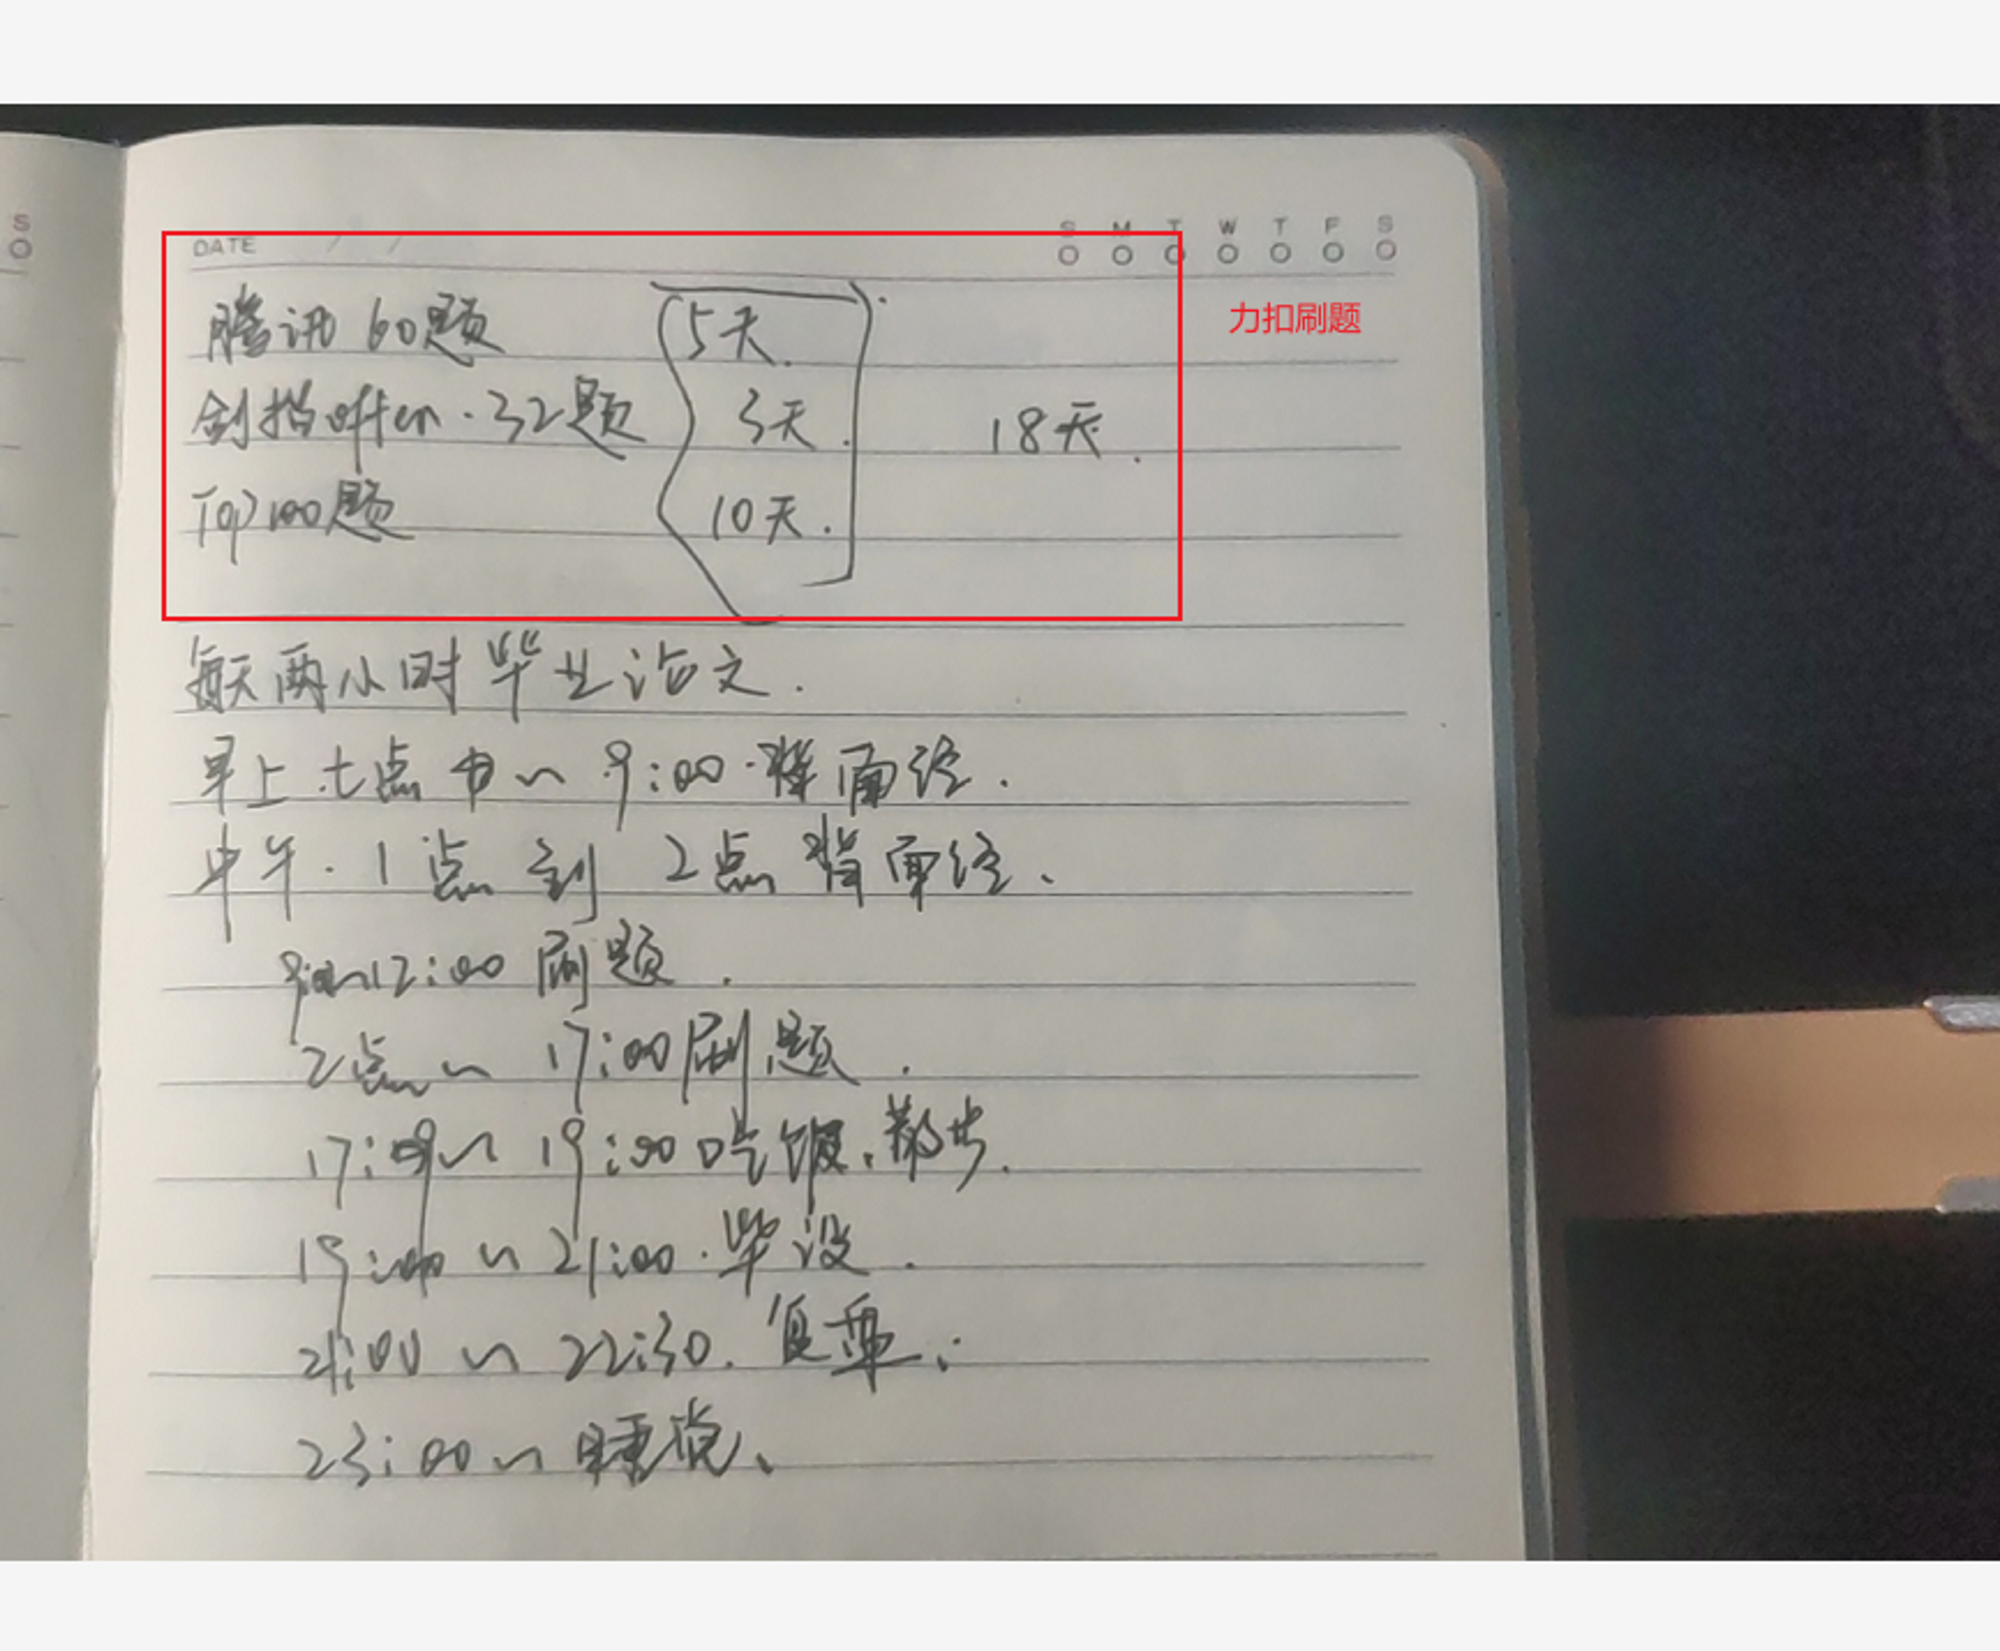 S
DATE / /
S M T W T F S
腾讯 60题 5天.
力扣刷题
剑指offer.32题 3天. 18天.
Top100题 10天.
每天两小时毕业论文.
早上七点半~9:00.背面经.
中午.1点到2点背面经.
9:00~12:00刷题.
2点~17:00刷题.
17:00~19:00吃饭.散步.
19:00~21:00.毕设.
21:00~22:30.复盘.
23:00~睡觉.